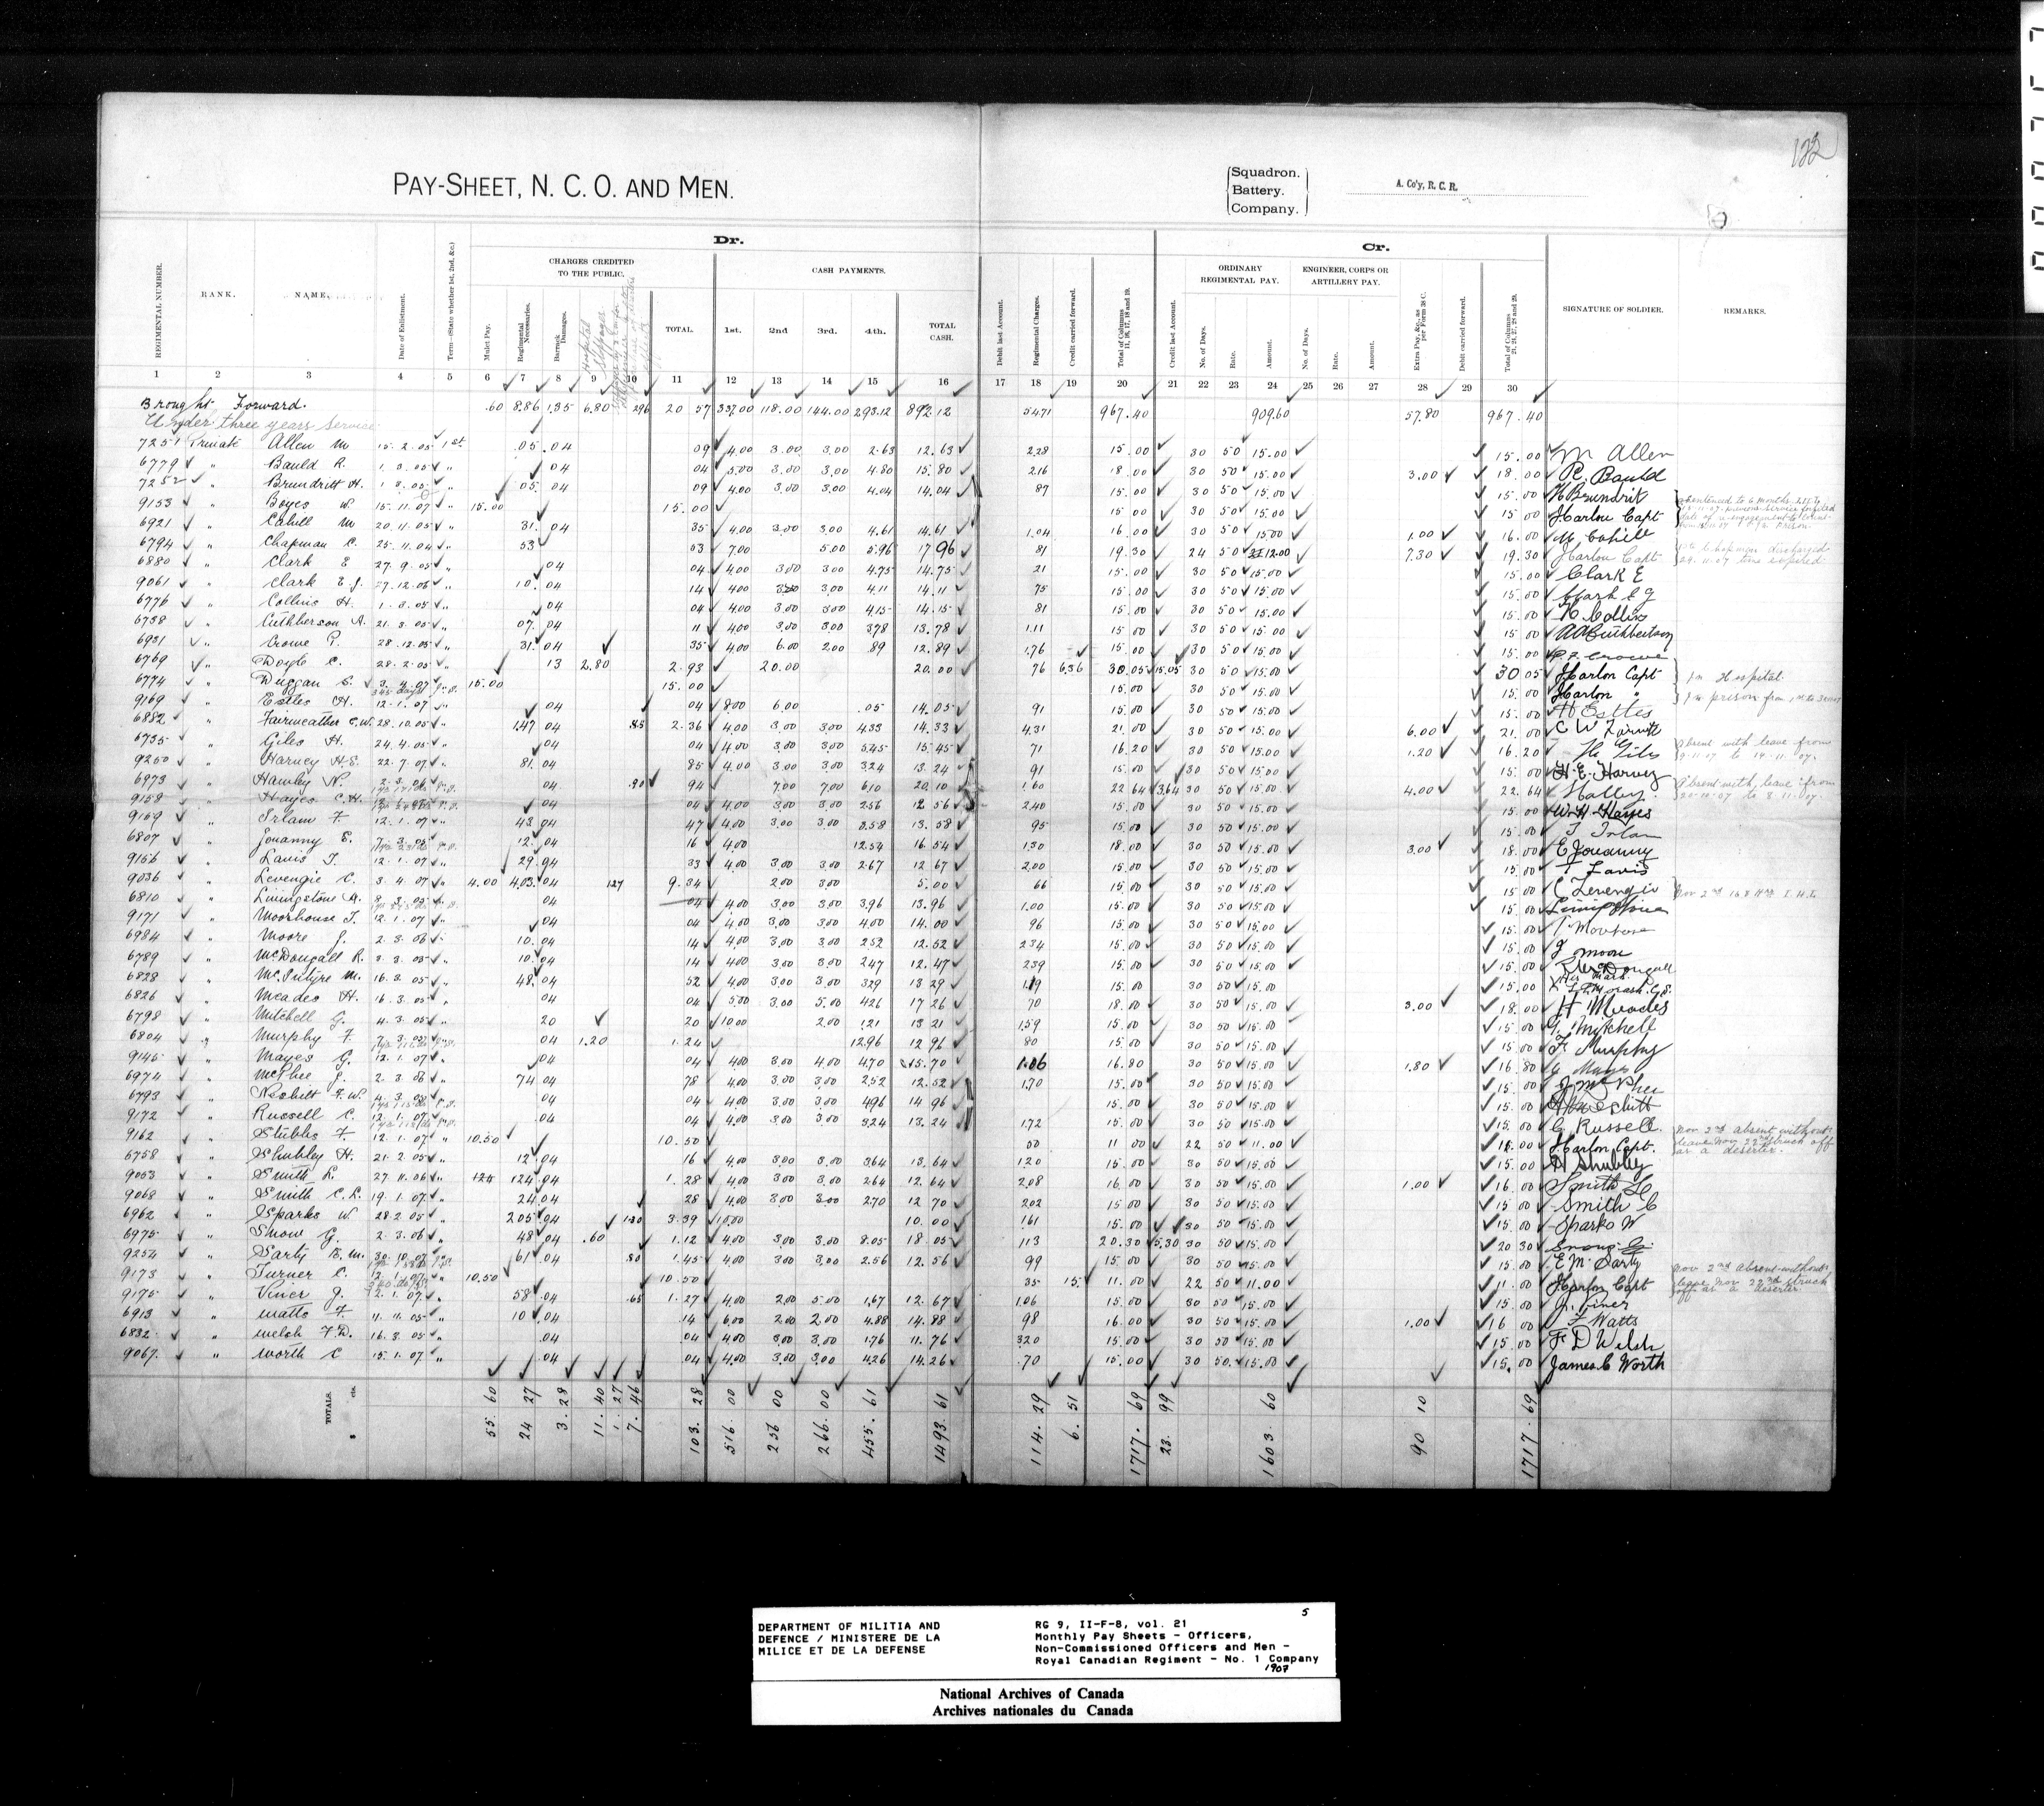 122
PAY-SHEET, N. C. O. AND MEN.
Squadron.
Battery.
Company.
A. Co'y, R. C. R.
Dr.
Cr.
CHARGES CREDITED TO THE PUBLIC.
CASH PAYMENTS.
ORDINARY REGIMENTAL PAY.
ENGINEER, CORPS OR ARTILLERY PAY.
REGIMENTAL NUMBER. RANK. NAME. Date of Enlistment. Term—(State whether 1st, 2nd, &c.) Mulct Pay. Regimental Necessaries. Barrack Damages. Hospital Stoppages TOTAL. 1st. 2nd 3rd. 4th. TOTAL CASH. Debit last Account. Regimental Charges. Credit carried forward. Total of Columns 11, 16, 17, 18 and 19. Credit last Account. No. of Days. Rate. Amount. No. of Days. Rate. Amount. Extra Pay, &c., as per Form 38 C. Debit carried forward. Total of Columns 21, 24, 27, 28 and 29. SIGNATURE OF SOLDIER. REMARKS.
1 2 3 4 5 6 7 8 9 10 11 12 13 14 15 16 17 18 19 20 21 22 23 24 25 26 27 28 29 30
Brought Forward. .60 8.86 1.35 6.80 2.96 20 57 337.00 118.00 144.00 293.12 892.12 54.71 967.40 909.60 57.80 967.40
Under three years service
7251 Private Allen M 15.2.05 1st .05 .04 09 4.00 3.00 3.00 2.63 12.63 2.28 15.00 30 50 15.00 15.00 M Allen
6779 " Bauld R. 1.3.05 " 04 04 5.00 3.00 3.00 4.80 15.80 2.16 18.00 30 50 15.00 3.00 18.00 R. Bauld
7252 " Brundritt H. 1.3.05 " .05 04 09 4.00 3.00 3.00 4.04 14.04 87 15.00 30 50 15.00 15.00 H Brundrit
9153 " Boyes W. 15.11.07 " 15.00 15.00 15.00 30 50 15.00 15.00 Harlon Capt
6921 " Cahill M 20.11.05 " 31 04 35 4.00 3.00 3.00 4.61 14.61 1.04 16.00 30 50 15.00 1.00 16.00 M. Cahill
6794 " Chapman C. 25.11.04 " 53 53 7.00 5.00 5.96 17 96 81 19.30 24 50 12.00 7.30 19.30 Harlon Capt Pte Chapman discharged 24.11.07 time expired.
6880 " Clark E 27.9.05 " 04 04 4.00 3.00 3.00 4.75 14.75 21 15.00 30 50 15.00 15.00 Clark E
9061 " Clark E.J. 27.12.06 " 10 04 14 4.00 3.00 3.00 4.11 14.11 75 15.00 30 50 15.00 15.00 Clark E J
6776 " Collins H. 1.3.05 " 04 04 4.00 3.00 3.00 4.15 14.15 81 15.00 30 50 15.00 15.00 H. Collins
6738 " Cuthberson A. 21.3.05 " 07 04 11 4.00 3.00 3.00 3.78 13.78 1.11 15.00 30 50 15.00 15.00 A A Cuthbertson
6931 " Crowe P. 28.12.05 " 31 04 35 4.00 6.00 2.00 89 12.89 1.76 15.00 30 50 15.00 15.00 P. F. Crowe
6769 " Doyle C. 28.2.05 " 13 2.80 2.93 20.00 20.00 76 6.36 30.05 15.05 30 50 15.00 30 05 Harlon Capt In Hospital
6774 " Duggan S. 3.4.07 15.00 15.00 15.00 30 50 15.00 15.00 Harlon " In prison from 1st to 30.11.07
9169 " Estles H. 12.1.07 " 04 04 8.00 6.00 .05 14.05 91 15.00 30 50 15.00 15.00 H Estles
6882 " Fairweather C.W. 28.10.05 " 1.47 04 .85 2.36 4.00 3.00 3.00 4.33 14.33 4.31 21.00 30 50 15.00 6.00 21.00
6735 " Giles H. 24.4.05 " 04 04 4.00 3.00 3.00 5.45 15.45 71 16.20 30 50 15.00 1.20 16.20 H. Giles Absent with leave from 9.11.07 to 19.11.07.
9250 " Harvey H.E. 22.7.07 " 81 04 85 4.00 3.00 3.00 3.24 13.24 91 15.00 30 50 15.00 15.00 H. E. Harvey
6973 " Hawley N. 2.3.06 04 .90 94 7.00 7.00 6.10 20.10 1.60 22 64 3.64 30 50 15.00 4.00 22.64 Absent with leave from 20-10-07 to 8.11.07.
9158 " Hayes C.H. 04 04 4.00 3.00 3.00 2.56 12 56 2.40 15.00 30 50 15.00 15.00 W H Hayes
9159 " Irlam F. 12.1.07 " 43 04 47 4.00 3.00 3.00 3.58 13.58 95 15.00 30 50 15.00 15.00 F Irlam
6807 " Jouanny E. 7.3.05 12 04 16 4.00 12.54 16 54 1.30 18.00 30 50 15.00 3.00 18.00 E Jouanny
9156 " Lavis T. 12.1.07 " 29 04 33 4.00 3.00 3.00 2.67 12 67 2.00 15.00 30 50 15.00 15.00 T Lavis
9036 " Levengie C. 3.4.07 " 4.00 4.03 04 1.27 9.34 2.00 3.00 5.00 66 15.00 30 50 15.00 15.00 C Levengie
6810 " Livingstone A. 8.3.05 04 04 4.00 3.00 3.00 3.96 13.96 1.00 15.00 30 50 15.00 15.00 Livingstone
9171 " Moorhouse T. 12.1.07 04 04 4.00 3.00 3.00 4.00 14.00 96 15.00 30 50 15.00 15.00
6984 " Moore J. 2.3.06 10 04 14 4.00 3.00 3.00 2.52 12.52 2.34 15.00 30 50 15.00 15.00 J Moore
6789 " McDougall R. 3.3.05 10 04 14 4.00 3.00 3.00 2.47 12.47 2.39 15.00 30 50 15.00 15.00 R McDougall
6828 " McIntyre M. 16.3.05 " 48 04 52 4.00 3.00 3.00 3.29 13 29 1.19 15.00 30 50 15.00 15.00 His X Mark
6826 " Meades H. 16.3.05 " 04 04 5.00 3.00 5.00 4.26 17 26 70 18.00 30 50 15.00 3.00 18.00 H Meades
6798 " Mitchell G. 4.3.05 " 20 20 10.00 2.00 1.21 13 21 1.59 15.00 30 50 15.00 15.00 G. Mitchell
6804 " Murphy F. 04 1.20 1.24 12.96 12 96 80 15.00 30 50 15.00 15.00 F. Murphy
9145 " Mayes G. 12.1.07 04 04 4.00 3.00 4.00 4.70 15.70 1.06 16.80 30 50 15.00 1.80 16.80 G Mayes
6974 " McPhee J. 2.3.06 " 74 04 78 4.00 3.00 3.00 2.52 12.52 1.70 15.00 30 50 15.00 15.00 J McPhee
6793 " Nesbitt F.W. 04 04 4.00 3.00 3.00 4.96 14 96 15.00 30 50 15.00 15.00
9172 " Russell C. 12.1.07 .04 04 4.00 3.00 3.00 3.24 13.24 1.72 15.00 30 50 15.00 15.00 C. Russell.
9162 " Stubbs F. 12.1.07 " 10.50 10.50 50 11 00 22 50 11.00 11.00 Harlon Capt. Nov 2nd absent without leave Nov 22nd struck off as a deserter.
6758 " Shubley H. 21.2.05 " 12 04 16 4.00 3.00 3.00 3.64 13.64 1.20 15.00 30 50 15.00 15.00 H Shubley
9053 " Smith L. 27.11.06 " 1.24 04 1.28 4.00 3.00 3.00 2.64 12.64 2.08 16.00 30 50 15.00 1.00 16.00 Smith L
9068 " Smith C.L. 19.1.07 " 24 04 28 4.00 3.00 3.00 2.70 12 70 2.02 15.00 30 50 15.00 15.00 Smith C
6962 " Sparks W 28.2.05 " 2.05 04 1.30 3.39 10.00 10.00 1.61 15.00 30 50 15.00 15.00 Sparks W
6975 " Snow G. 2.3.06 " 48 04 .60 1.12 4.00 3.00 3.00 8.05 18.05 1.13 20.30 5.30 30 50 15.00 20 30 Snow G.
9254 " Sarty E.M. 30.10.07 61 04 .80 1.45 4.00 3.00 3.00 2.56 12.56 99 15.00 30 50 15.00 15.00 E M. Sarty
9173 " Turner C. 10.50 10.50 35 .15 11.00 22 50 11.00 11.00 Harlon Capt Nov 2nd Absent without leave Nov 22nd struck off as a deserter
9175 " Viner J. 12.1.07 58 04 .65 1.27 4.00 2.00 5.00 1.67 12.67 1.06 15.00 30 50 15.00 15.00 J. Viner
6913 " Watts F. 11.11.05 " 10 04 .14 6.00 2.00 2.00 4.88 14.88 98 16.00 30 50 15.00 1.00 16 00 F Watts
6832 " Welsh F.D. 16.3.05 " .04 04 4.00 3.00 3.00 1.76 11.76 3.20 15.00 30 50 15.00 15.00 F D Welsh
9067 " Worth C 15.1.07 " .04 04 4.00 3.00 3.00 4.26 14.26 .70 15.00 30 50 15.00 15.00 James C Worth
TOTALS. $ cts. 55.60 24 27 3.28 11.40 1.27 7.46 103.28 516.00 256 00 266.00 455.61 1493.61 114.29 6.51 1717.69 23.99 1603 60 90 10 1717.69
DEPARTMENT OF MILITIA AND DEFENCE / MINISTERE DE LA MILICE ET DE LA DEFENSE
5
RG 9, II-F-8, vol. 21
Monthly Pay Sheets - Officers,
Non-Commissioned Officers and Men -
Royal Canadian Regiment - No. 1 Company
1907
National Archives of Canada
Archives nationales du Canada